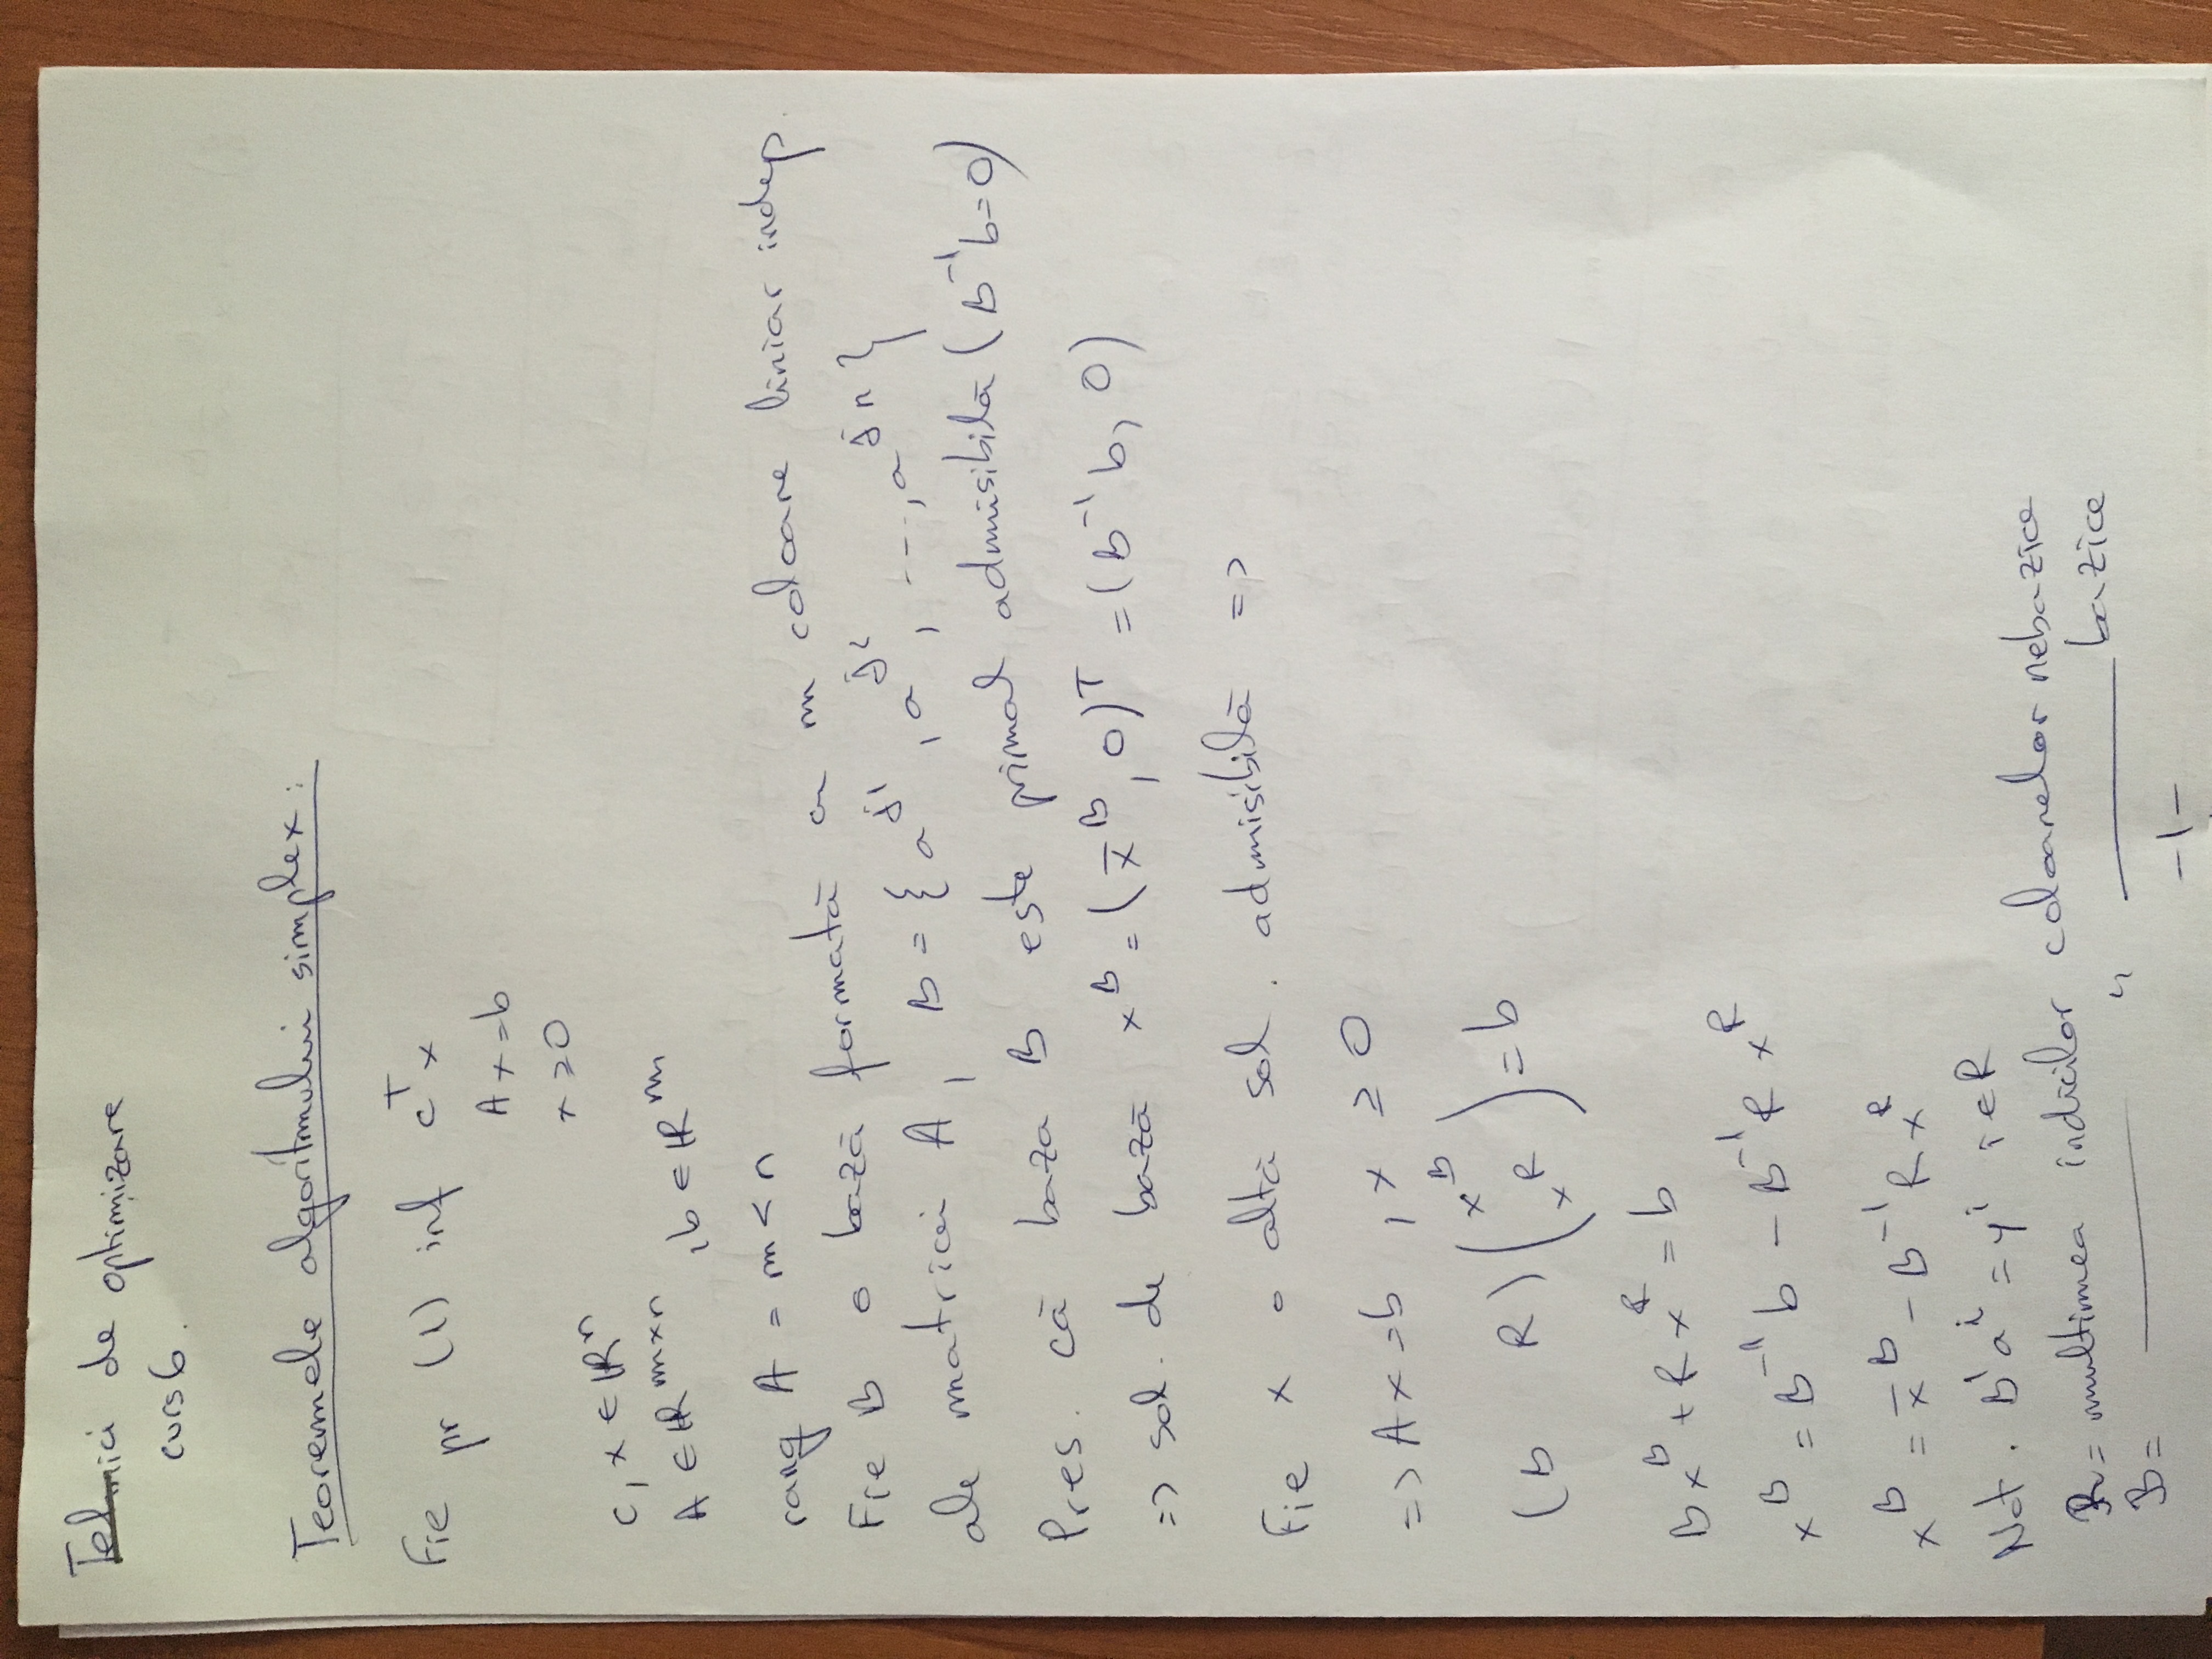 Tehnici de optimizare
curs 6.
Teoremele algoritmului simplex:
Fie pr (1) inf cᵀx
Ax=b
x≥0
c, x ∈ ℝⁿ
A ∈ ℝᵐˣⁿ, b ∈ ℝᵐ
rang A = m < n
Fie B o bază formată cu m coloane liniar indep.
ale matricii A, B = {a^j1, a^j2, ..., a^jn}
Pres. că baza B este primal admisibilă (B⁻¹b=0)
=> sol. de bază x^B = (x̄^B, 0)ᵀ = (B⁻¹b, 0)
Fie x o altă sol. admisibilă =>
=> Ax=b, x ≥ 0
(B R)(x^B x^R) = b
Bx^B + Rx^R = b
x^B = B⁻¹b - B⁻¹Rx^R
x^B = x̄^B - B⁻¹Rx^R
Not. B⁻¹a^i = y^i i∈R
R = multimea indicilor coloanelor nebazice
B = —— " —— bazice
-1-